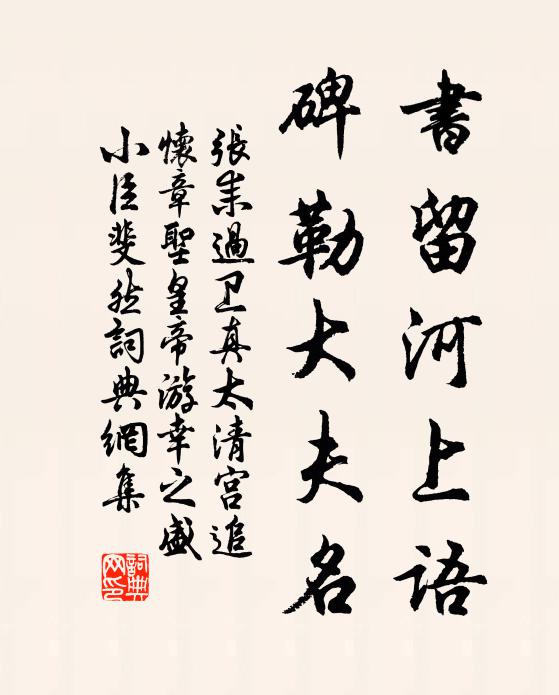 書留河上語
碑勒大夫名
張耒過卫真太清宫追
懷章聖皇帝游幸之盛
小臣斐然詞典網集
詞典
网印